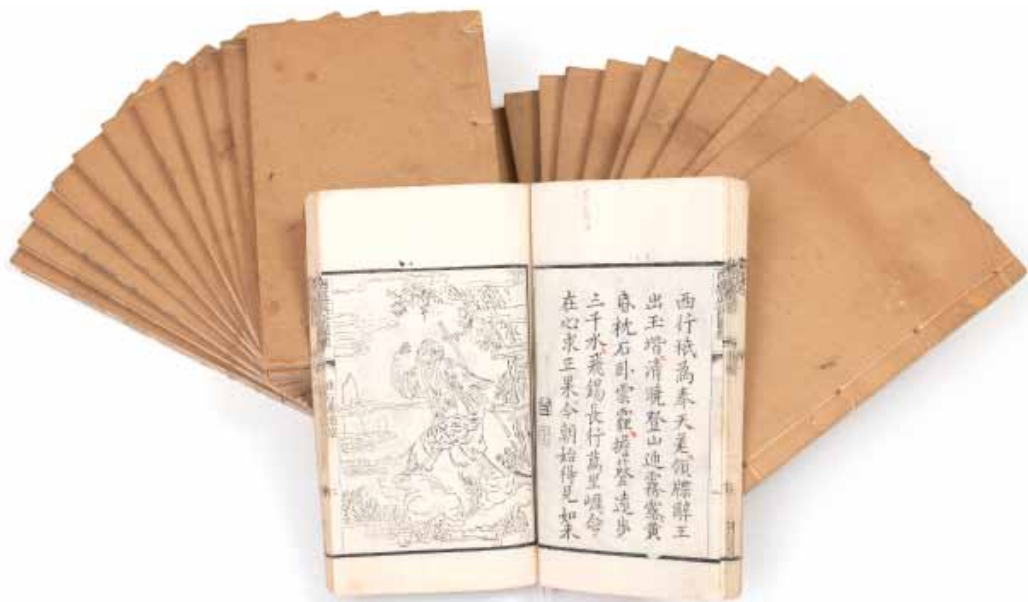 西行秪為奉天差領牒辭王
出玉堦清曉登山迎霧露黄
昏枕石卧雲霾擔簦遠步
三千水飛錫長行萬里崕念〻
在心求正果今朝始得見如来